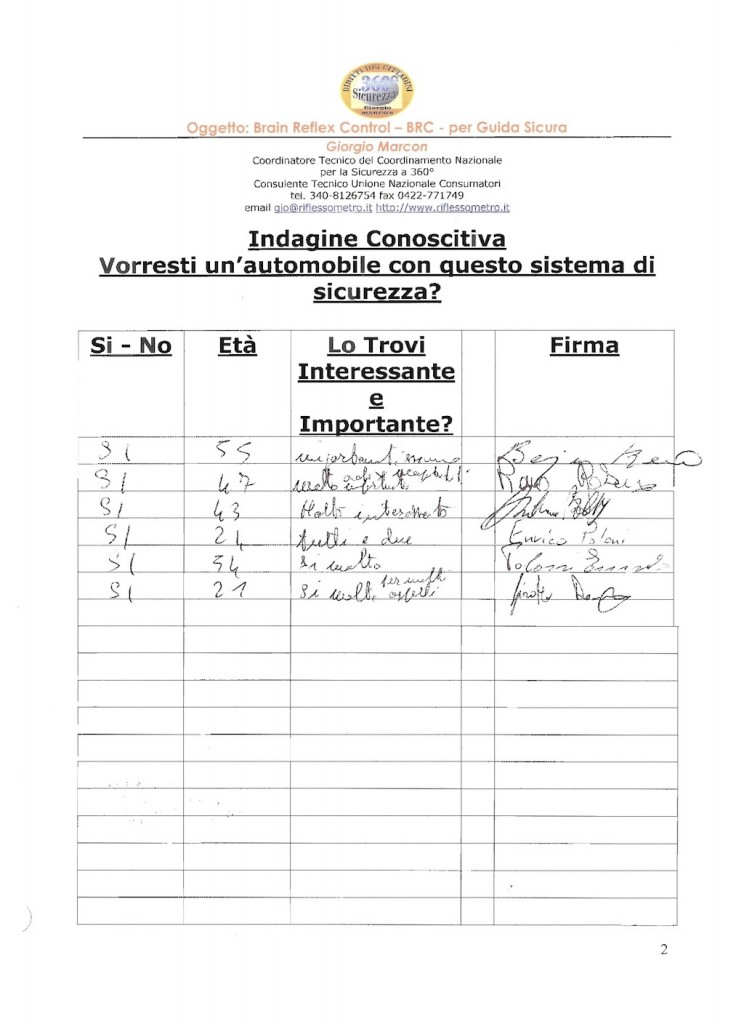 DIRITTI DEI CITTADINI
360°
Sicurezza
Giorgio
MARCON
Oggetto: Brain Reflex Control – BRC - per Guida Sicura
Giorgio Marcon
Coordinatore Tecnico del Coordinamento Nazionale
per la Sicurezza a 360°
Consulente Tecnico Unione Nazionale Consumatori
tel. 340-8126754 fax 0422-771749
email gio@riflessometro.it http://www.riflessometro.it
Indagine Conoscitiva
Vorresti un'automobile con questo sistema di
sicurezza?
Si - No Età Lo Trovi Firma
Interessante
e
Importante?
SI 55
SI 47 molto
SI 43 Molto interessato
SI 24 tutti e due Enrico Poloni
SI 54 Si molto
SI 21 Si molto per molti aspetti
2